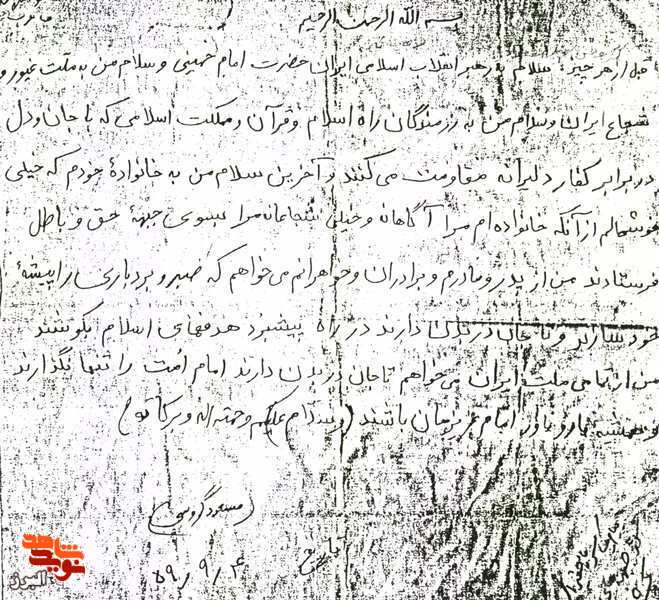 بسم الله الرحمن الرحیم
قبل از هر چیز: سلام به رهبر انقلاب اسلامی ایران حضرت امام خمینی و سلام من به ملت غیور و
شجاع ایران و سلام من به رزمندگان راه اسلام و قرآن و مملکت اسلامی که با جان و دل
در برابر کفار دلیرانه مقاومت می کنند و آخرین سلام من به خانوادهٔ خودم که خیلی
خوشحالم از آنکه خانواده ام مرا آگاهانه و خیلی شجاعانه مرا بسوی جبههٔ حق و باطل
فرستادند من از پدر و مادرم و برادران و خواهرانم می خواهم که صبر و بردباری را پیشهٔ
خود سازند و تا جان در بدن دارند در راه پیشبرد هدفهای اسلام بکوشند
من از تمامی ملت ایران می خواهم تا جان در بدن دارند امام امت را تنها نگذارند
و همیشه یار و یاور امام عزیزمان باشند (والسلام علیکم و رحمته اله و برکاتو)
(مسعود گروسی)
تاریخ
۵۹/۹/۴
شاهد
نوید
البرز